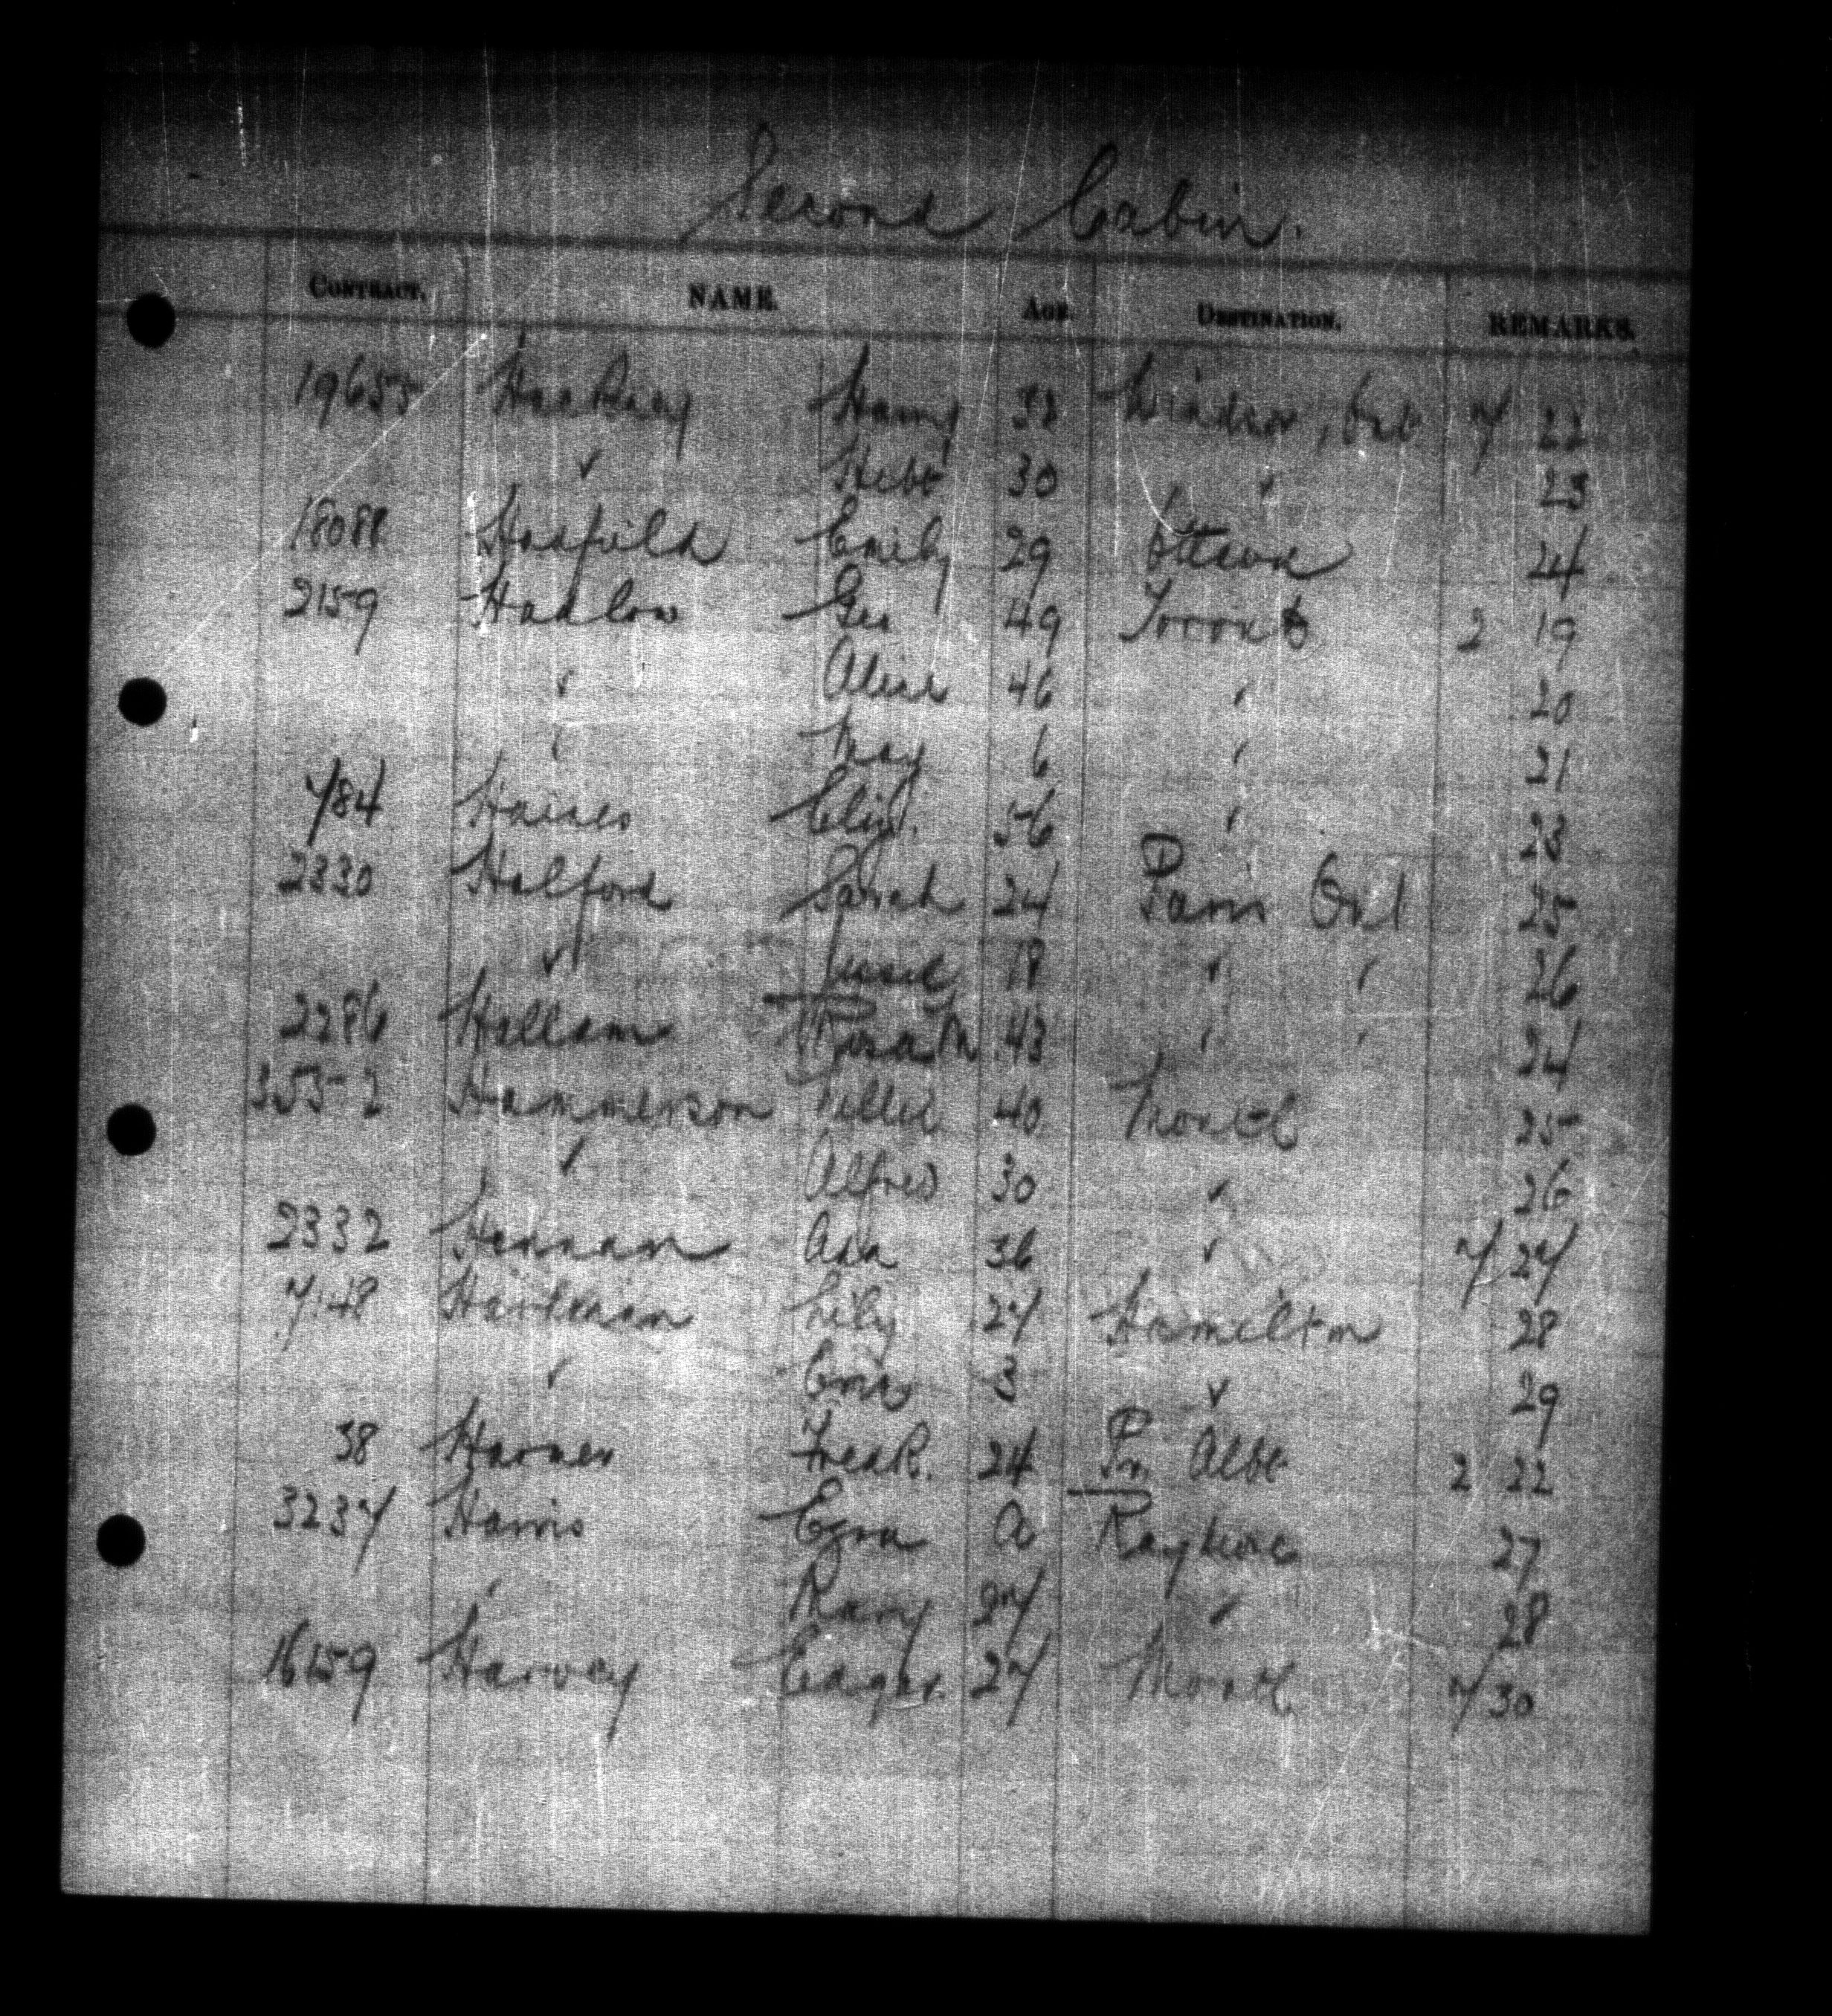 Second Cabin.
CONTRACT. NAME. AGE. DESTINATION. REMARKS.
19655 Hackney Harry 32 Windsor, Ont 7 22
" Hebt 30 " 23
18088 Hadfield Emily 29 Ottawa 24
2159 Hadlow Geo 49 Toronto 2 19
" Alice 46 " 20
" May 6 " 21
784 Haines Eliz. 56 " 23
2330 Halford Sarah 24 Paris Ont 25
" Jessie 18 " " 26
2286 Hallam Rosa M 43 " " 24
3552 Hammerson Nellie 40 Montl 25
" Alfred 30 " 26
2332 Hannan Ada 36 " 7 27
7148 Lily 27 Hamilton 28
" 3 " 29
38 Harner Fredk. 24 Pr. Albt 2 22
3237 Harris Ezra A 27
" Mary 27 " 28
16159 Harvey Edgar. 27 Montl 7 30